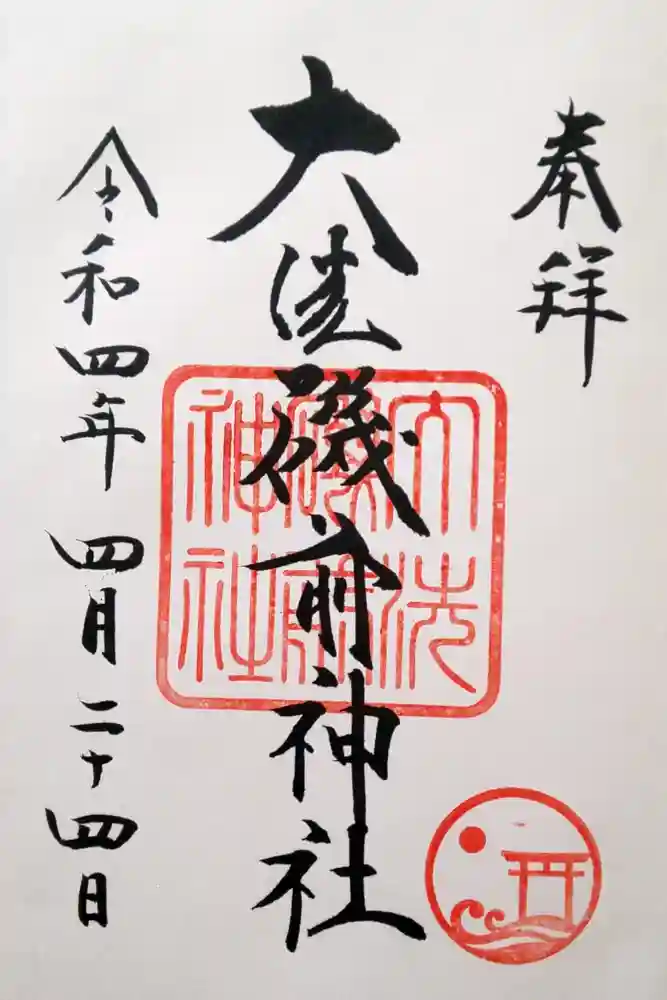 奉拝
大洗磯前神社
令和四年 四月 二十四日
大洗
磯前
神社